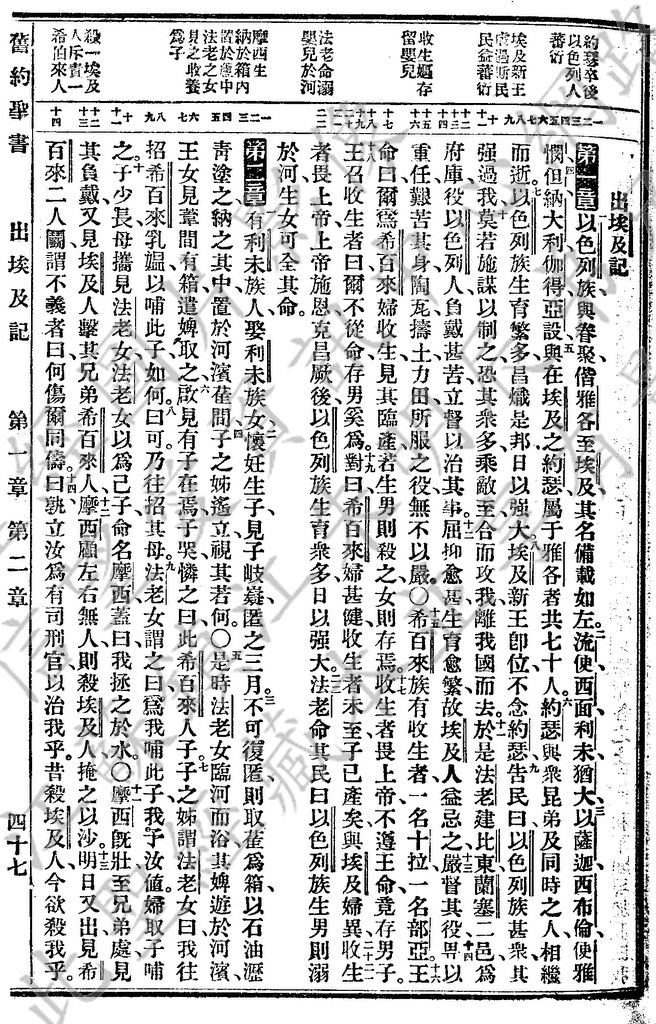 出埃及記
第一章以色列族與眷聚偕雅各至埃及其名備載如左流便西面利未猶大以薩迦西布倫便雅
憫但納大利伽得亞設與在埃及之約瑟屬于雅各者共七十人約瑟與衆昆弟及同時之人相繼
而逝以色列族生育繁多昌熾是邦日以強大埃及新王卽位不念約瑟告民曰以色列族甚衆其
強過我莫若施謀以制之恐其衆多乘敵至合而攻我離我國而去於是法老建比東蘭塞二邑爲
府庫役以色列人負戴甚苦立督以治其事屈抑愈甚生育愈繁故埃及人益忌之嚴督其役畀以
重任艱苦其身陶瓦擣土力田所服之役無不以嚴〇希百來族有收生者一名十拉一名部亞王
命曰爾爲希百來婦收生見其臨產若生男則殺之女則存焉收生者畏上帝不遵王命竟存男子
王召收生者曰爾不從命存男奚爲對曰希百來婦甚健收生者未至子已產矣與埃及婦異收生
者畏上帝上帝施恩克昌厥後以色列族生育衆多日以強大法老命其民曰以色列族生男則溺
於河生女可全其命
第二章有利未族人娶利未族女懷妊生子見子岐嶷匿之三月不可復匿則取萑爲箱以石油瀝
靑塗之納之其中置於河濱萑間子之姊遙立視其若何〇是時法老女臨河而浴其婢遊於河濱
王女見葦間有箱遣婢取之啟見有子在焉子哭憐之曰此希百來人子子之姊謂法老女曰我往
招希百來乳媼以哺此子如何曰可乃往招其母法老女謂之曰爲我哺此子我予汝值婦取子哺
之子少長母攜見法老女法老女以爲己子命名摩西蓋曰我拯之於水〇摩西旣壯至兄弟處見
其負戴又見埃及人擊其兄弟希百來人摩西顧左右無人則殺埃及人掩之以沙明日又出見希
百來二人鬬謂不義者曰何傷爾同儔曰孰立汝爲有司刑官以治我乎昔殺埃及人今欲殺我乎
約瑟卒後
以色列人
蕃衍
埃及新王
虐遇斯民
民益蕃衍
收生嫗存
留嬰兒
法老命溺
嬰兒於河
摩西生
納於箱內
置於葦中
法老之女
見之收養
爲子
殺一埃及
人斥責一
希伯來人
舊約聖書 出埃及記 第一章 第二章 四十七